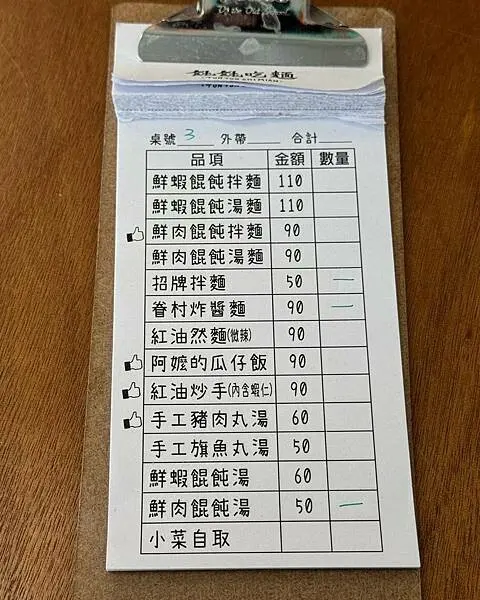 妞妞吃麵
桌號 3 外帶____ 合計____
品項 金額 數量
鮮蝦餛飩拌麵 110
鮮蝦餛飩湯麵 110
鮮肉餛飩拌麵 90
鮮肉餛飩湯麵 90
招牌拌麵 50 一
眷村炸醬麵 90 一
紅油然麵(微辣) 90
阿嬤的瓜仔飯 90
紅油炒手(內含蝦仁) 90
手工豬肉丸湯 60
手工旗魚丸湯 50
鮮蝦餛飩湯 60
鮮肉餛飩湯 50 一
小菜自取